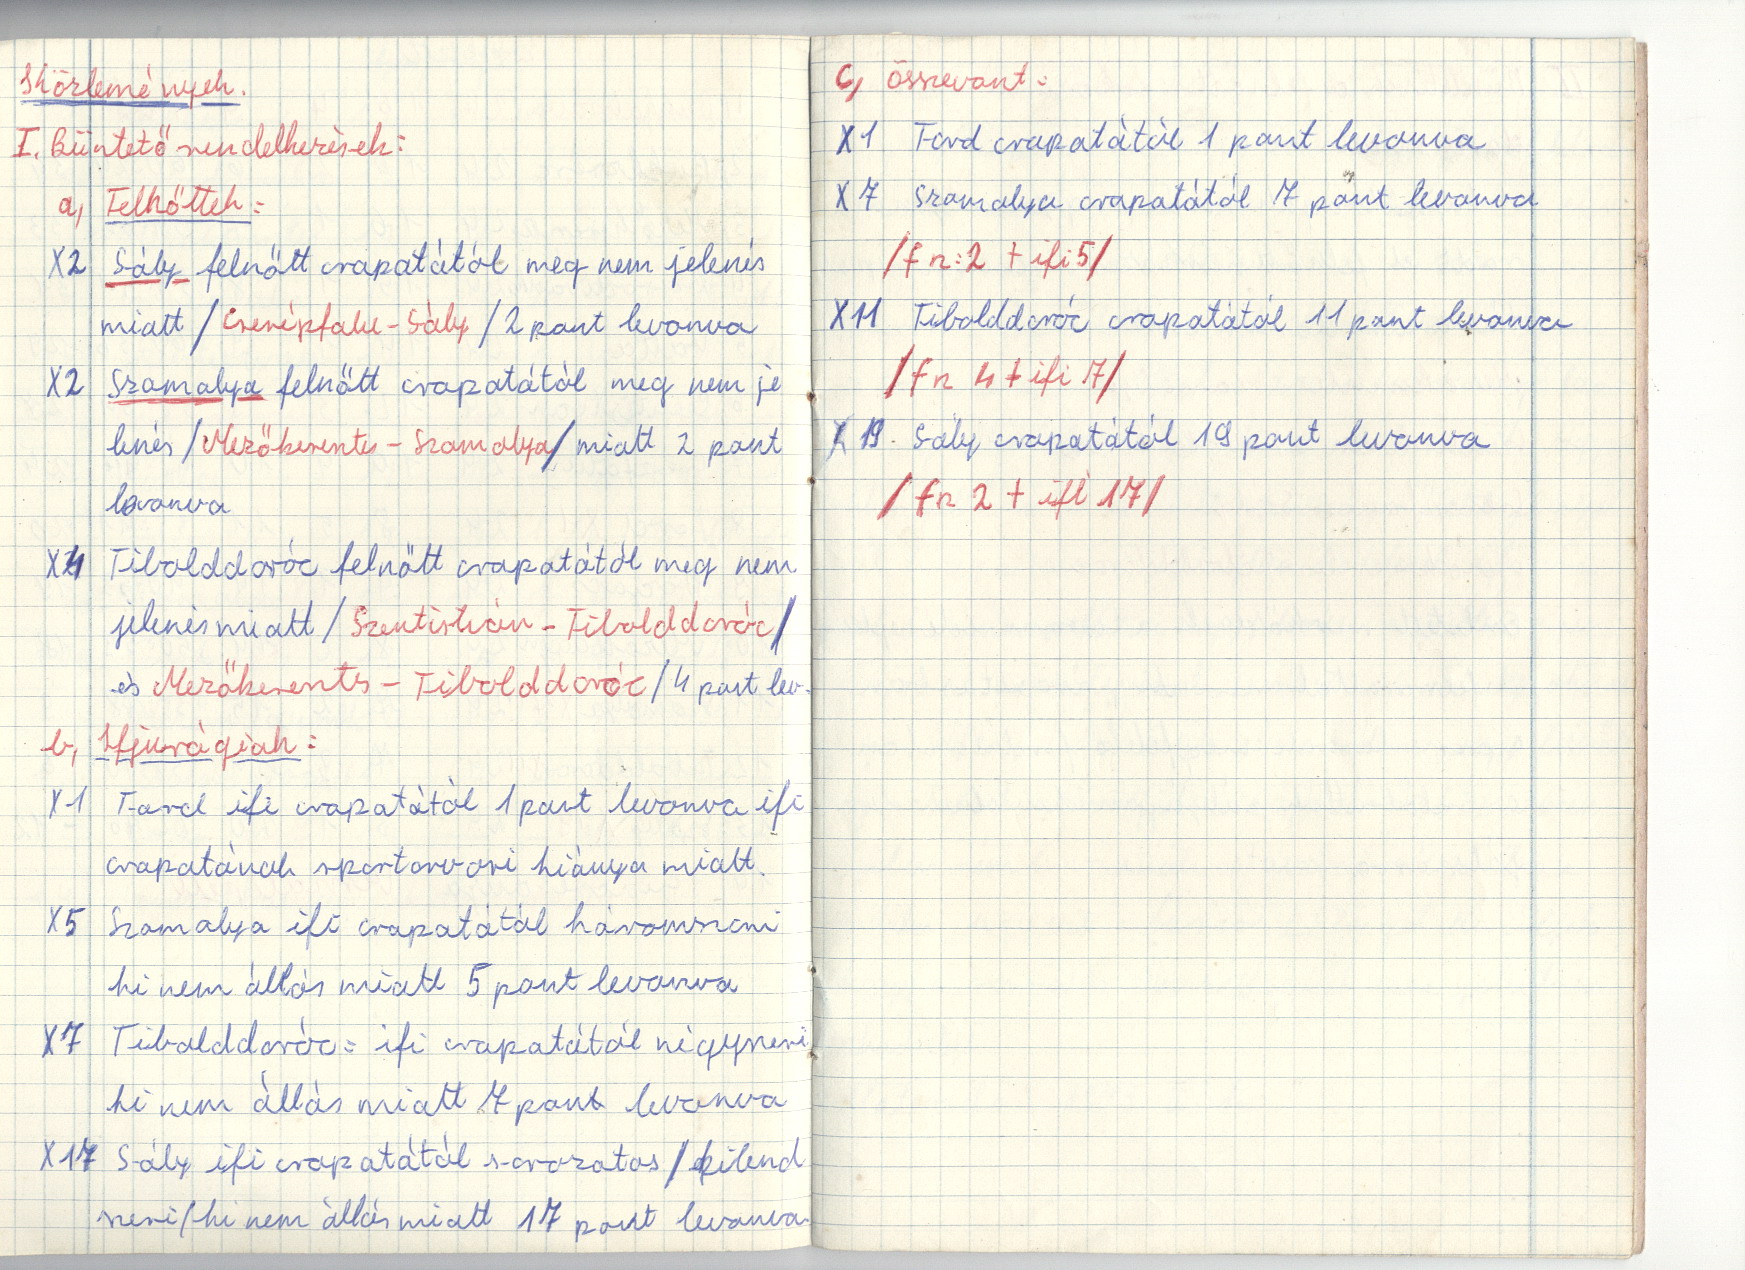 Közlemények.
I. Büntető rendelkezések:
a, Felnőttek:
X2 Sály felnőtt csapatától meg nem jelenés
miatt / Cserépfalu - Sály / 2 pont levonva
X2 Szomolya felnőtt csapatától meg nem je
lenés / Mezőkeresztes - Szomolya / miatt 2 pont
levonva
X4 Tibolddaróc felnőtt csapatától meg nem
jelenés miatt / Szentistván - Tibolddaróc /
és Mezőkeresztes - Tibolddaróc / 4 pont lev.
b, Ifjuságiak:
X1 Tard ifi csapatától 1 pont levonva ifi
csapatának sportorvosi hiánya miatt.
X5 Szomolya ifi csapatától háromszori
ki nem állás miatt 5 pont levonva
X7 Tibolddaróc= ifi csapatától négyszeri
ki nem állás miatt 7 pont levonva
X17 Sály ifi csapatától sorozatos / kilenc
szeri / ki nem állás miatt 17 pont levonva.
C, összevont:
X1 Tard csapatától 1 pont levonva
X7 Szomolya csapatától 7 pont levonva
/ fn: 2 + ifi 5 /
X11 Tibolddaróc csapatától 11 pont levonva
/ fn 4 + ifi 7 /
X19. Sály csapatától 19 pont levonva
/ fn 2 + ifi 17 /